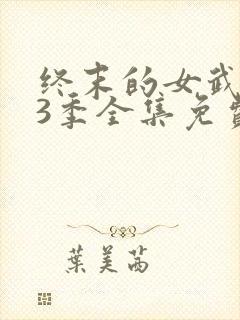 终末的女武
3季全集免费
葉美茜